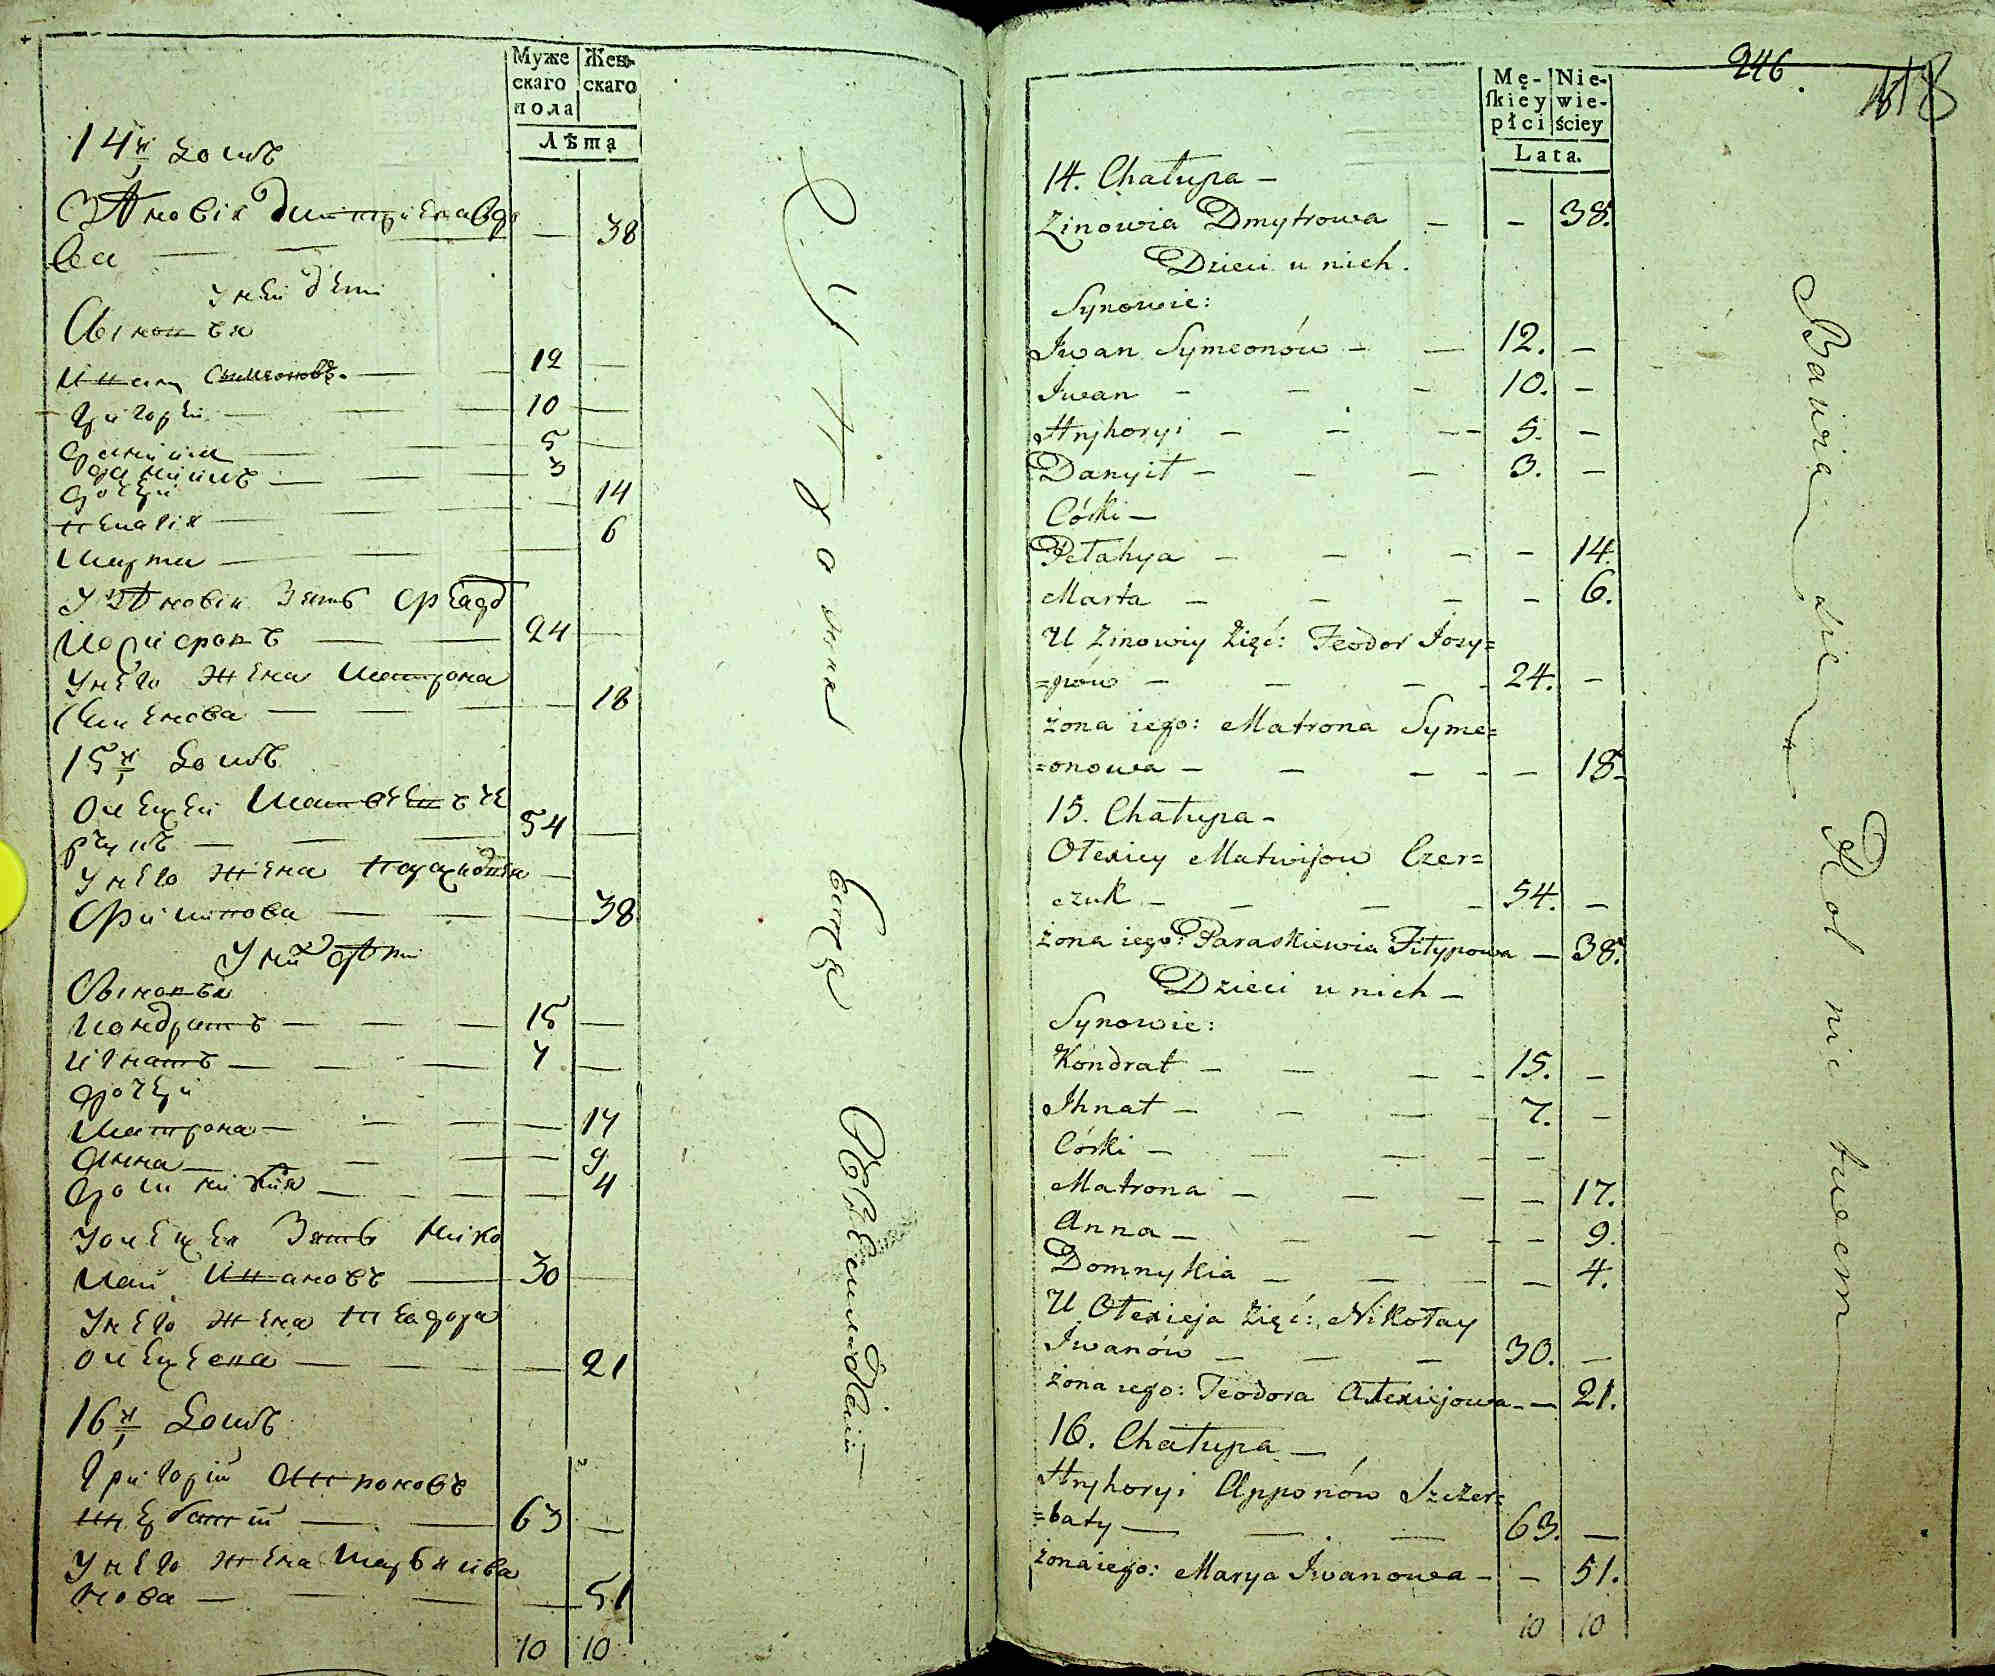 Муже
скаго
пола
Жен-
скаго
Лѣта
14й домъ
Зѣновія Димитріева вдо
ва — — 38
У ней дѣти
Сыновья
Иванъ Симеоновъ — 12 —
Григорей — 10 —
Даниилъ — 3
дочери
Пелагія — 14
Марта — 6
У Зѣновіи Зять Феодо
24 —
У него жена Матрона
Симеонова — 18
15й домъ
Олексей Матвеевъ Че
рчукъ — 54 —
У него жена Параскевія —
Филипова — 38
У ниⷯ дѣти
Сыновья
Кондратъ — 15 —
Игнатъ — 7 —
дочери
Матрона — 17
Анна — 9
Домникия — 4
У Олексея Зять Нико
лай Ивановъ — 30 —
У него жена Феодора
Олексеева — 21
16й домъ
Григорій Апроновъ
Щербатій — 63 —
У него жена Марья Ива
нова — 51
10 10
246.
118
Mę-
skiey
płci
Nie-
wie-
ściey
Lata.
14. Chałupa —
Zinowia Dmytrowa — — 38.
Dzieci u nich.
Synowie:
Iwan Symeonów — — 12. —
Iwan — — — 10. —
Hryhoryi — — — 5. —
Danyił — — — 3. —
Córki —
Pełahya — — — — 14.
Marta — — — — 6.
U Zinowiy Zięć: Teodor Iozy=
=pów — — — 24. —
żona iego: Matrona Syme=
=onowa — — — — 18.
15. Chałupa —
Ołexiey Matwijow Czer=
czuk — — — 54. —
żona iego: Paraskiewia Filypowa — 38.
Dzieci u nich —
Synowie:
Kondrat — — — 15. —
Ihnat — — — 7. —
Córki — — — —
Matrona — — — — 17.
Anna — — — — 9.
Domnykia — — — — 4.
U Ołexieja Zięć: Nikołay
Iwanów — — — 30. —
żona iego: Teodora Ałexiejowa — — 21.
16. Chałupa —
Hryhoryi Apponów Szczer=
=baty — — — 63. —
żona iego: Marya Iwanowa — — 51.
10 10
Bawią się z Rol nic tucm